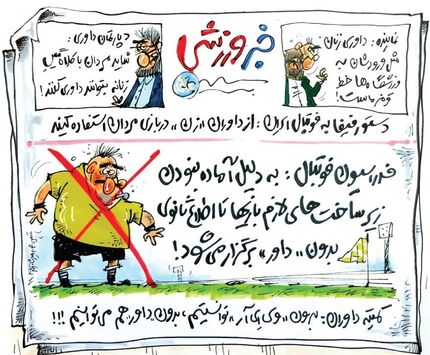 نماینده: داوری زنان
مثل ورودشان به
ورزشگاه‌ها خط
قرمز ماست!
خبر ورزشی
دپارتمان داوری:
شاید مردان با کلاه گیس
زنانه بخواهند داوری کنند!
دستور فیفا به فوتبال ایران: از داوران «زن» در بازی مردان استفاده کنند
فدراسیون فوتبال: به دلیل آماده نبودن
زیرساخت‌های لازم بازیها تا اطلاع ثانوی
بدون «داور» برگزار می‌شود!
کمیته داوران: بدون «وی‌ای‌آر» توانستیم، بدون داور هم می‌توانیم!!!